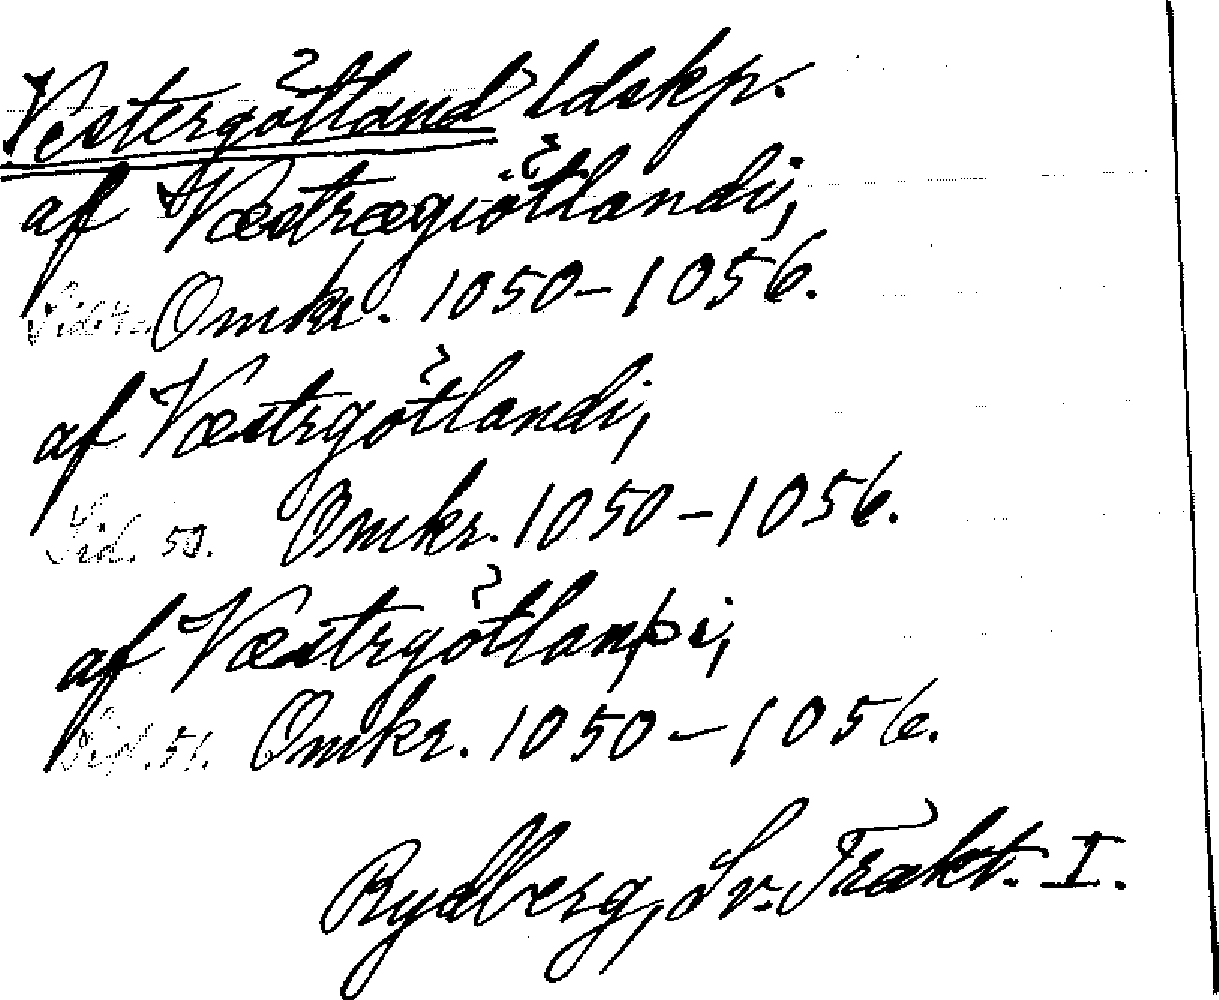 Vestergötland ldskp.
af Væstrægiötlandi,
Omkr. 1050-1056.
af Væstrgötlandi,
Sid. 50. Omkr. 1050-1056.
af Væstrgötlanþi,
Sid. 51. Omkr. 1050-1056.
Rydberg, Sv. Trakt. I.